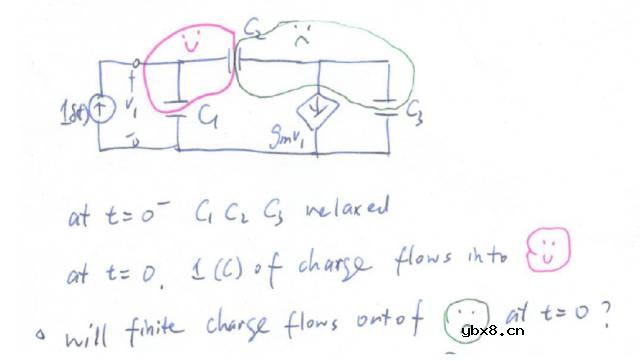 C2
1δ(t)
+
V1
-
C1
gmV1
C3
at t=0⁻ C1 C2 C3 relaxed
at t=0, 1(C) of charge flows into
• will finite charge flows onto of at t=0?
gbx8.cn